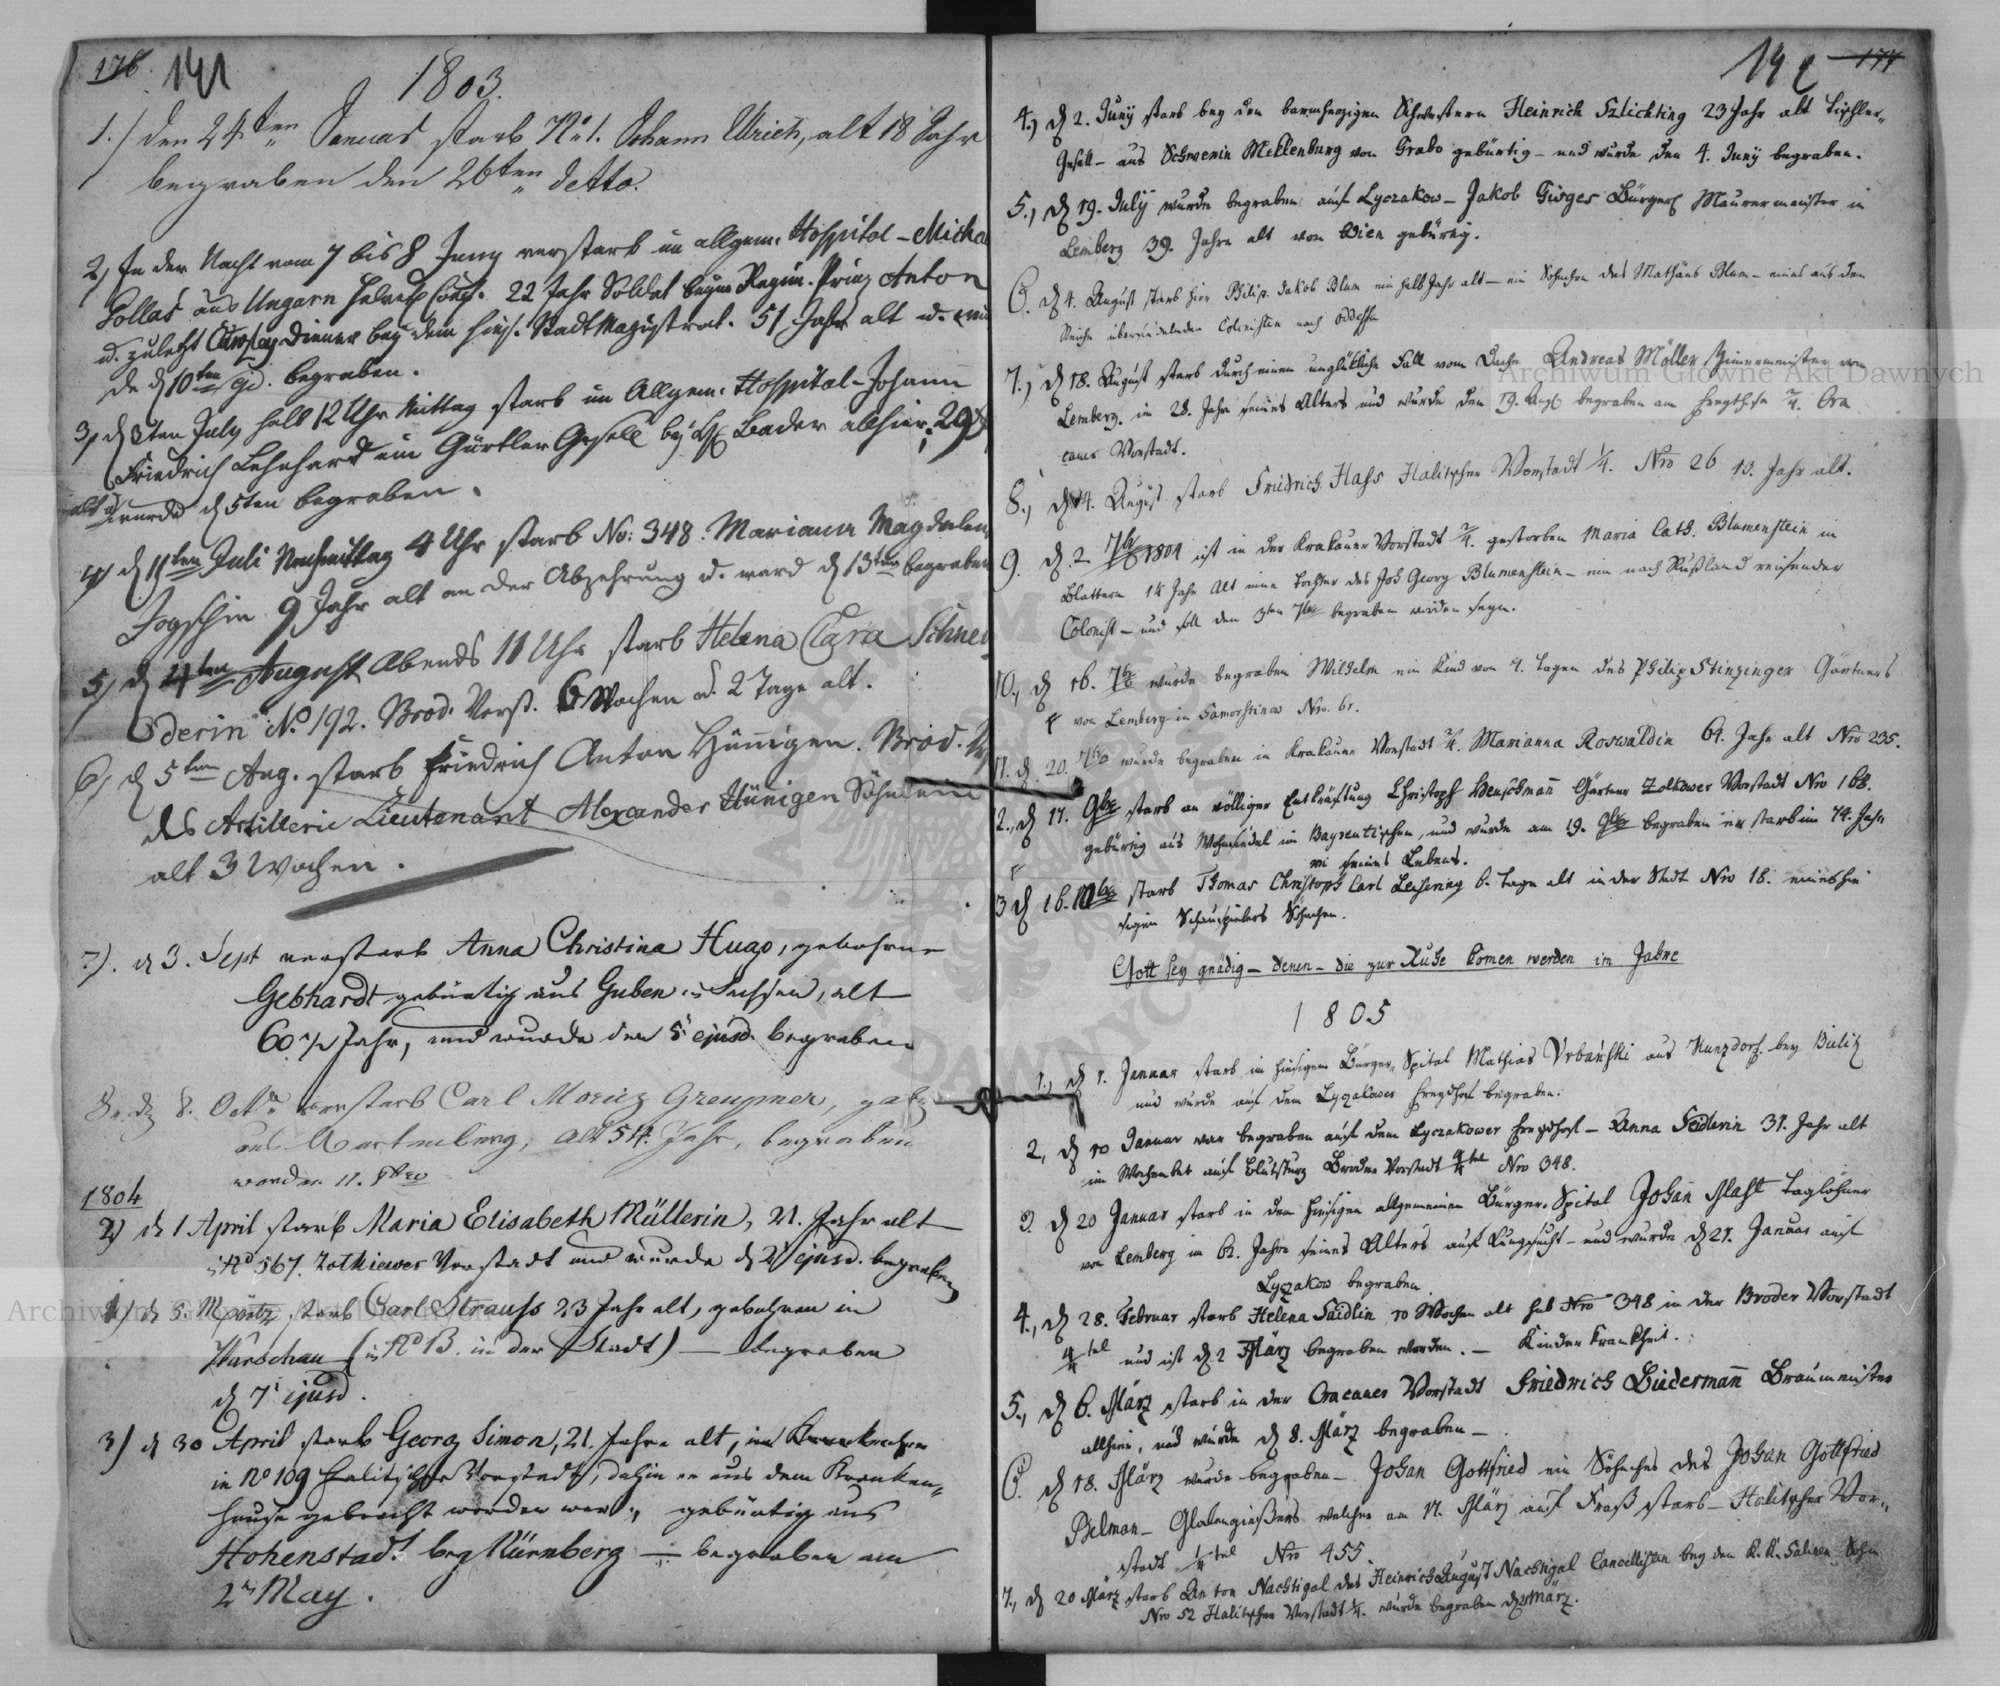 176. 141
1803.
1.) den 24ten Januar starb No 1. Johann Ulrich, alt 18 Jahr
begraben den 26ten detto.
2) In der Nacht vom 7 bis 8 Juny verstarb im allgem. Hospital - Micha
Pollas aus Ungarn 22 Jahr Soldat beym Regim. Prinz Anton
u. zuletzt Diener bey dem hies. Stadt Magistrat. 51 Jahr alt u. wur
de d 10ten ejd. begraben.
3) d 3ten July halb 12 Uhr Mittag starb im Allgem: Hospital - Johann
Friedrich Lehnhard ein Gürtler Gesell bey H Bader allhier, 29 J
alt u wurde d 5ten begraben.
4) d 11ten Juli Nachmittag 4 Uhr starb No: 348. Mariana Magdalen
9 Jahr alt an der Abzehrung u. ward d 13ten begraben
5) d 4ten August Abends 11 Uhr starb Helena Clara Schnei
derin No. 192. Brod. Vorst. 6 Wochen u. 2 Tage alt.
6) d 5ten Aug. starb Friedrich Anton Hünigen. Brod. V
des Artillerie Lieutenant Alexander Hünigen Söhnlein
alt 3 Wochen.
7). d 3. Sept verstarb Anna Christina Hugo, gebohrne
Gebhardt gebürtig aus Guben in Sachsen, alt
60 1/2 Jahr, und wurde den 5 ejusd. begraben
8. d 8. Octbr verstarb Carl Moriz Greupner, geb
aus Wartenberg, alt 54. Jahr, begraben
worden 11.
1804
d 1 April starb Maria Elisabeth Müllerin, 21. Jahr alt
in No 567. Zolkiewer Vorstadt und wurde d 2 ejusd. begraben
d 5. März starb Carl Strauss 23 Jahr alt, gebohren in
Warschau (in No 13. in der Stadt) — begraben
d 7 ejusd.
3) d 30 April starb Georg Simon, 21. Jahre alt, im
in No 109 Halitscher Vorstadt, dahin er aus dem Kranken-
hause gebracht worden war, gebürtig aus
Hohenstadt bey Nürnberg — begraben am
2n May.
142 177
4.) d 2. Juny starb bey den barmherzigen Schwestern Heinrich Szlichting 23 Jahr alt Tischler-
Gesell - aus Schwerin Meklenburg von Grabo gebürtig - und wurde den 4. Juny begraben.
5.) d 19. July wurde begraben auf Lyczakow - Jakob Girges Bürgerl Maurermeister in
Lemberg 39. Jahre alt von Wien gebürtig.
6. d 4. August starb hier Philip. Jakob Blum ein halb Jahr alt - ein Söhnchen des Mathäus Blum - eines aus dem
Reiche übersiedelnden Colonisten nach Odessa
7.) d 18. August starb durch einen unglükliche Fall vom Dache Andreas Möller Zimermeister von
Lemberg. in 28. Jahr seines Alters und wurde den 19. Augt begraben am 2/4. Cra
cauer Vorstadt.
8.) d 14. August starb Friedrich Hass Halitscher Vorstadt 1/4. Nro 26 13. Jahr alt.
9. d. 2 7br 1804 ist in der Krakauer Vorstadt 2/4. gestorben Maria Cath. Blumenstein in
Blattern 14 Jahr alt eine Tochter des Joh Georg Blumenstein - ein nach Rußland reisender
Colonist - und soll den 3ten 7br begraben worden seyn.
10.) d 16. 7br wurde begraben Wilhelm ein Kind von 4. Tagen des Philip Stinzinger Gärtners
von Lemberg in Nro. 61.
11. d. 20. 7br wurde begraben in Krakauer Vorstadt 2/4. Marianna Roswaldin 64. Jahr alt Nro 235.
2., d 17. 9br starb an völliger Entkräftung Christoph Henschmañ Gärtner Zolkower Vorstadt Nro 168.
gebürtig aus Wohnsiedel im Bayreutischen, und wurde am 19. 9br begraben er starb im 74. Jah-
re seines Lebens.
3 d 16. 10br starb Thomas Christoph Carl Leihering 6. Tage alt in der Stadt Nro 18. eines hie
sigen Schauspielers Söhnchen.
Gott sey gnädig - denen - die zur Ruhe komen werden im Jahre
1805
1., d 1. Januar starb im hiesigen Bürger-Spital Mathias Urbański aus Kunzdorf bey Bieliz
und wurde auf dem Lyczakower Freydhof begraben.
2., d 10 Januar war begraben auf dem Lyczakower Freydhof - Anna Seidlerin 31. Jahr alt
im Wochenbet auf Blutsturz Broder Vorstadt 4/4tel Nro 348.
3. d 20 Januar starb in dem hiesigen allgemeinen Bürger-Spital Johan Mast Taglöhner
von Lemberg im 62. Jahre seines Alters auf Lungesucht - und wurde d 21. Januar auf
Lyczakow begraben
4., d 28. Februar starb Helena Saidlin 10 Wochen alt hab Nro 348 in der Broder Vorstadt
4/4tel und ist d 2 März begraben worden. — Kinder Krankheit.
5., d 6. März starb in der Cracauer Vorstadt Friedrich Biedermañ Braümeister
allhier, und wurde d 8. März begraben —
6. d 18. März wurde begraben - Johan Gottfried ein Söhnches des Johan Gottfried
Belman - Glokengießers welcher am 17. März auf Fraß starb - Halitscher Vor-
stadt 1/4tel Nro 455.
7., d 20 März starb Anton Nachtigal des Heinrich August Nachtigal Cancellisten bey den K. K. Salinen Sohn
Nro 52 Halitscher Vorstadt 1/4. wurde begraben d 21 März.
Archiwum Główne Akt Dawnych
Archiwum Główne Akt Dawnych